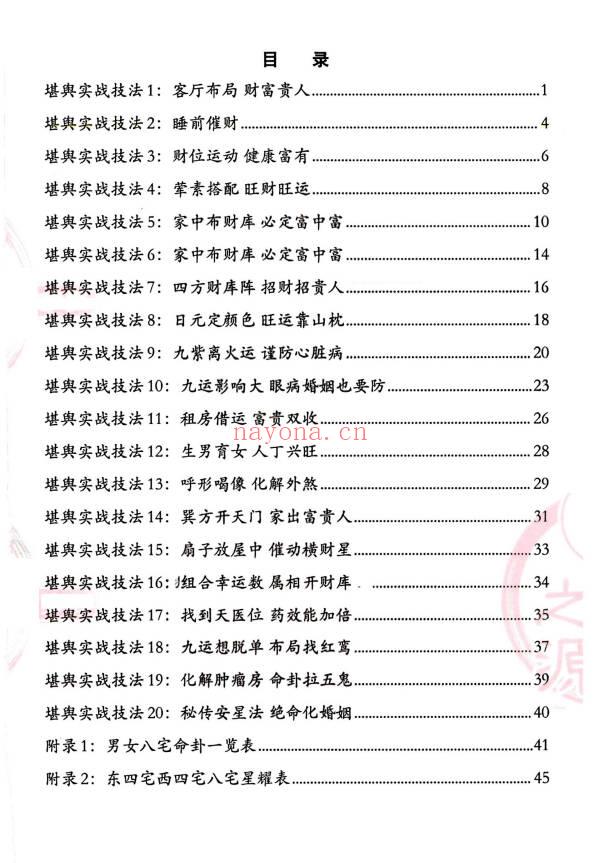 目 录
堪舆实战技法1：客厅布局 财富贵人........................1
堪舆实战技法2：睡前催财........................4
堪舆实战技法3：财位运动 健康富有........................6
堪舆实战技法4：荤素搭配 旺财旺运........................8
堪舆实战技法5：家中布财库 必定富中富........................10
堪舆实战技法6：家中布财库 必定富中富........................14
堪舆实战技法7：四方财库阵 招财招贵人........................16
堪舆实战技法8：日元定颜色 旺运靠山枕........................18
堪舆实战技法9：九紫离火运 谨防心脏病........................20
堪舆实战技法10：九运影响大 眼病婚姻也要防........................23
堪舆实战技法11：租房借运 富贵双收........................26
nayona.cn
堪舆实战技法12：生男育女 人丁兴旺........................28
堪舆实战技法13：呼形喝像 化解外煞........................29
堪舆实战技法14：巽方开天门 家出富贵人........................31
堪舆实战技法15：扇子放屋中 催动横财星........................33
堪舆实战技法16：组合幸运数 属相开财库........................34
堪舆实战技法17：找到天医位 药效能加倍........................35
堪舆实战技法18：九运想脱单 布局找红鸾........................37
堪舆实战技法19：化解肿瘤房 命卦拉五鬼........................39
堪舆实战技法20：秘传安星法 绝命化婚姻........................40
附录1：男女八宅命卦一览表........................41
附录2：东四宅西四宅八宅星耀表........................45
之源